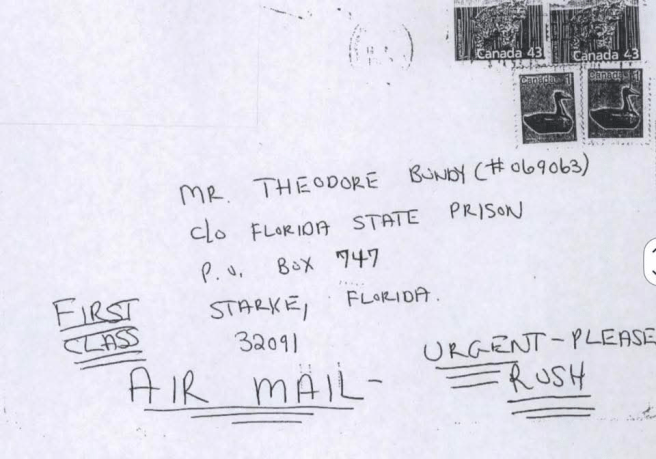 Canada 43 Canada 43
Canada 1 Canada 1
MR. THEODORE BUNDY (#069063)
c/o FLORIDA STATE PRISON
P.O. BOX 747
STARKE, FLORIDA.
32091
FIRST
CLASS
AIR MAIL-
URGENT-PLEASE
RUSH